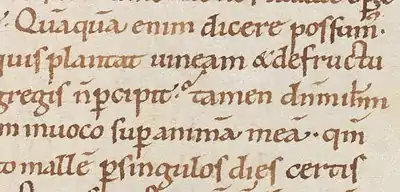 Quāquā enim dicere possum̄.
quis plantat uineam & de fructu
gregis n̄ p̄cipit. tamen dn̄m
inuoco sup animā meā. qm̄
mallē p singulos dies certis